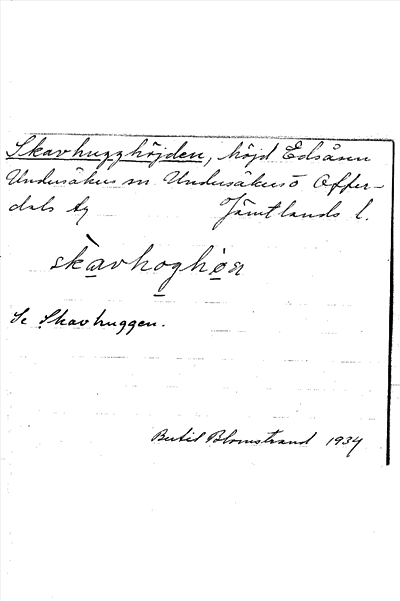 Skavhugghöjden, höjd Edsåsen
Undersåkers sn Undersåkers o Offer-
dals tg Jämtlands l.
skavhoghöᶇ
Se Skavhuggen.
Bertil Blomstrand 1934